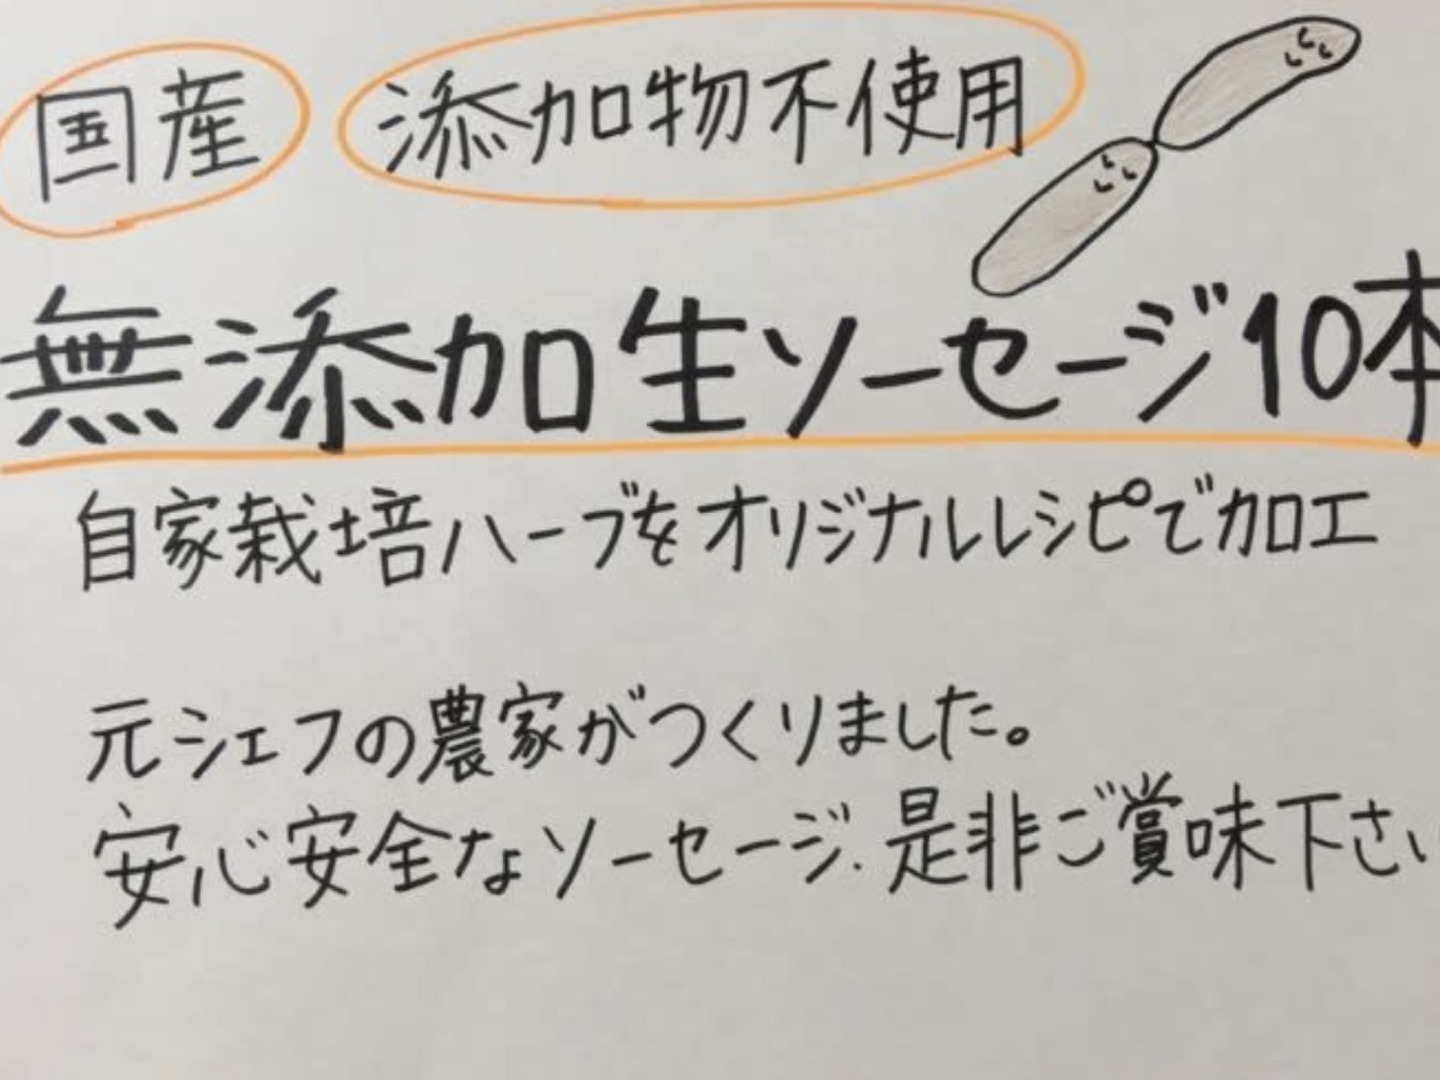 国産 添加物不使用
無添加生ソーセージ10本
自家栽培ハーブをオリジナルレシピで加工
元シェフの農家がつくりました。
安心安全なソーセージ.是非ご賞味下さい